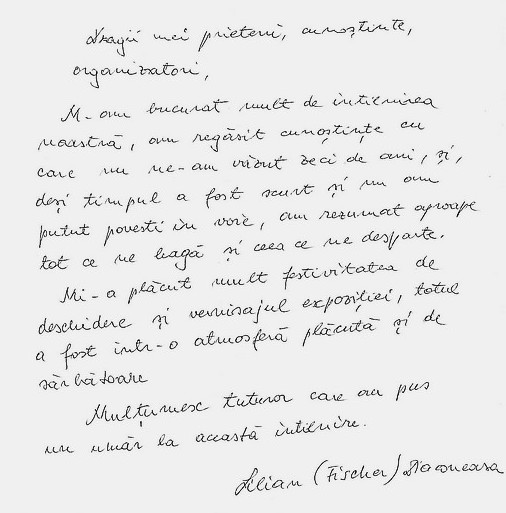 Dragii mei prieteni, cunoștințe,
organizatori,
M-am bucurat mult de intilnirea
noastră, am regăsit cunoștințe cu
care nu ne-am văzut zeci de ani, și,
deși timpul a fost scurt și nu am
putut povesti în voie, am rezumat aproape
tot ce ne leagă și ceea ce ne desparte.
Mi-a plăcut mult festivitatea de
deschidere și vernisajul expoziției, totul
a fost într-o atmosferă plăcută și de
sărbătoare
Mulțumesc tuturor care au pus
un umăr la această intilnire.
Lilian (Fischer) Diaconeasa